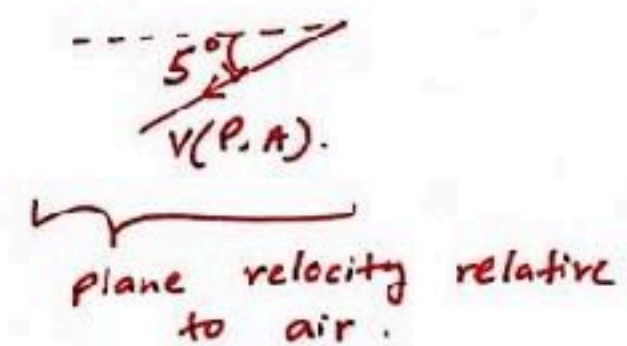 5°
V(P,A).
plane velocity relative
to air.